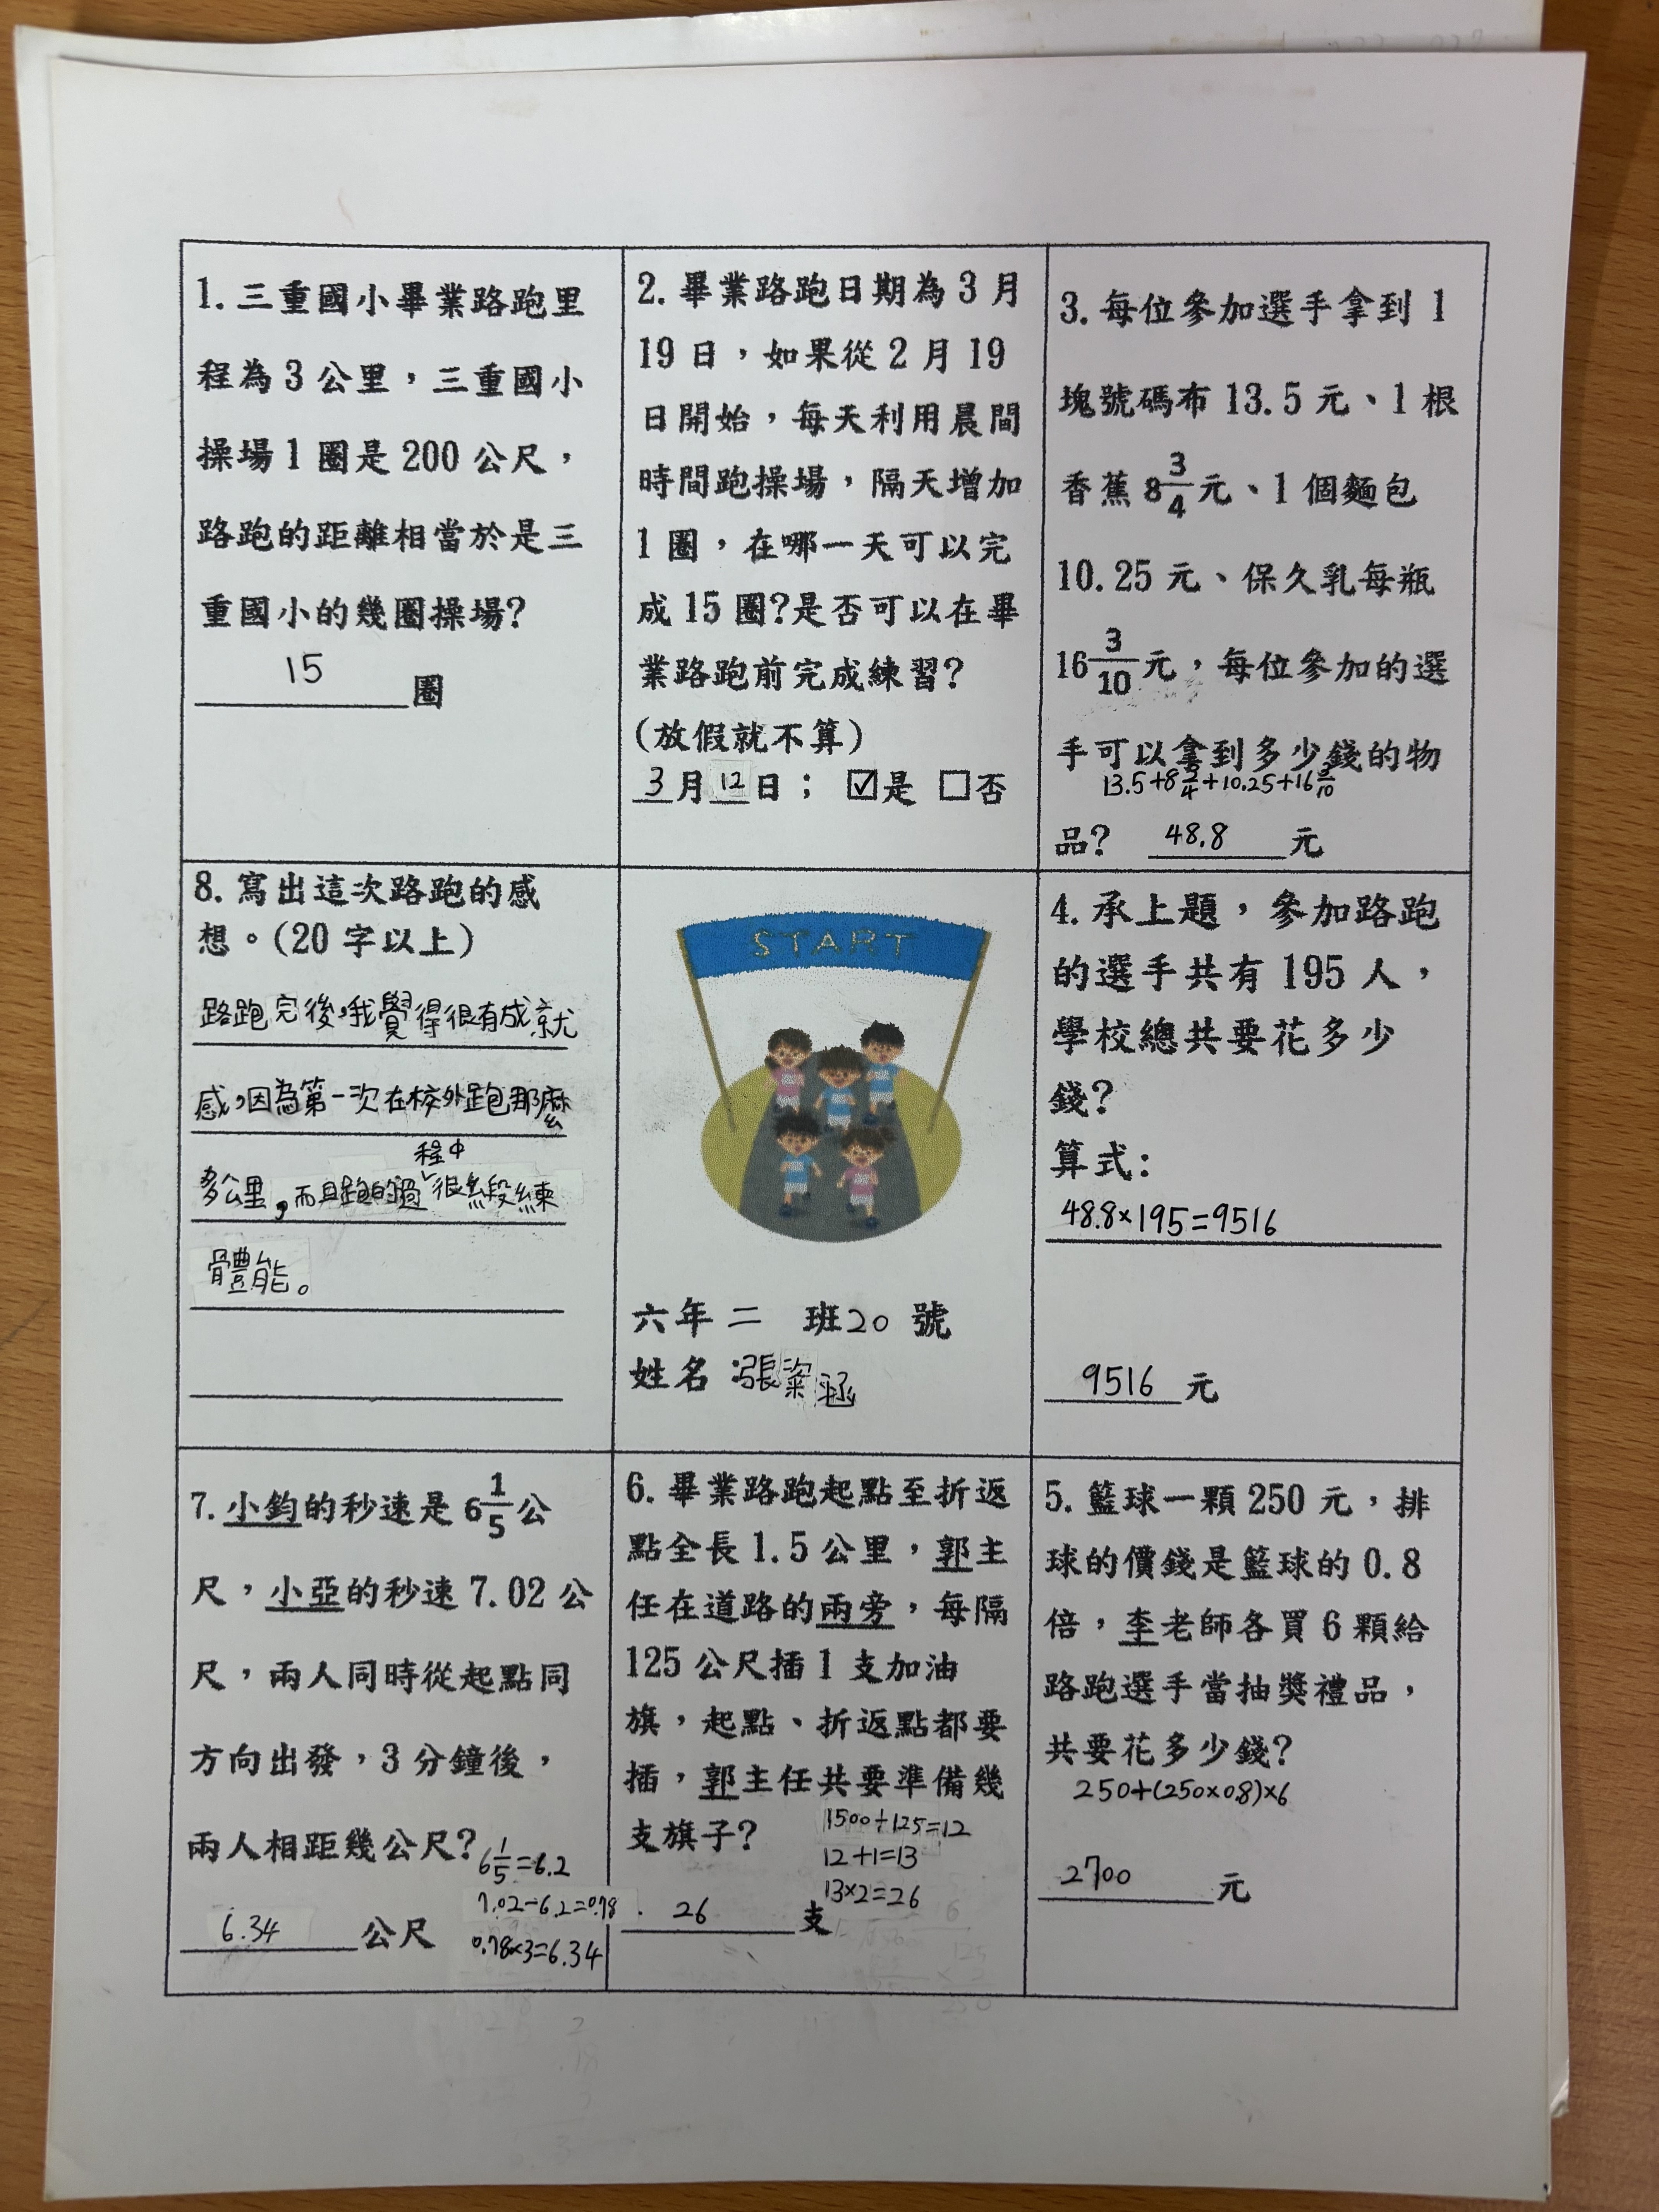 1. 三重國小畢業路跑里
程為 3 公里，三重國小
操場 1 圈是 200 公尺，
路跑的距離相當於是三
重國小的幾圈操場?
15 圈
2. 畢業路跑日期為 3 月
19 日，如果從 2 月 19
日開始，每天利用晨間
時間跑操場，隔天增加
1 圈，在哪一天可以完
成 15 圈?是否可以在畢
業路跑前完成練習?
(放假就不算)
3 月 12 日； ☑是 □否
3. 每位參加選手拿到 1
塊號碼布 13.5 元、1 根
香蕉 8 3/4 元、1 個麵包
10.25 元、保久乳每瓶
16 3/10 元，每位參加的選
手可以拿到多少錢的物
13.5+8 3/4+10.25+16 3/10
品? 48.8 元
8. 寫出這次路跑的感
想。(20 字以上)
路跑完後，我覺得很有成就
感，因為第一次在校外跑那麼
程中
多公里，而且跑的過很緞練
體能。
START
六年 二 班20 號
姓名：張
4. 承上題，參加路跑
的選手共有 195 人，
學校總共要花多少
錢?
算式:
48.8×195=9516
9516 元
7. 小鈞的秒速是 6 1/5 公
尺，小亞的秒速 7.02 公
尺，兩人同時從起點同
方向出發，3 分鐘後，
兩人相距幾公尺?
6 1/5=6.2
7.02-6.2=0.78
0.78×3=6.34
6.34 公尺
6. 畢業路跑起點至折返
點全長 1.5 公里，郭主
任在道路的兩旁，每隔
125 公尺插 1 支加油
旗，起點、折返點都要
插，郭主任共要準備幾
支旗子?
1500÷125=12
12+1=13
13×2=26
26 支
5. 籃球一顆 250 元，排
球的價錢是籃球的 0.8
倍，李老師各買 6 顆給
路跑選手當抽獎禮品，
共要花多少錢?
250+(250×0.8)×6
2700 元